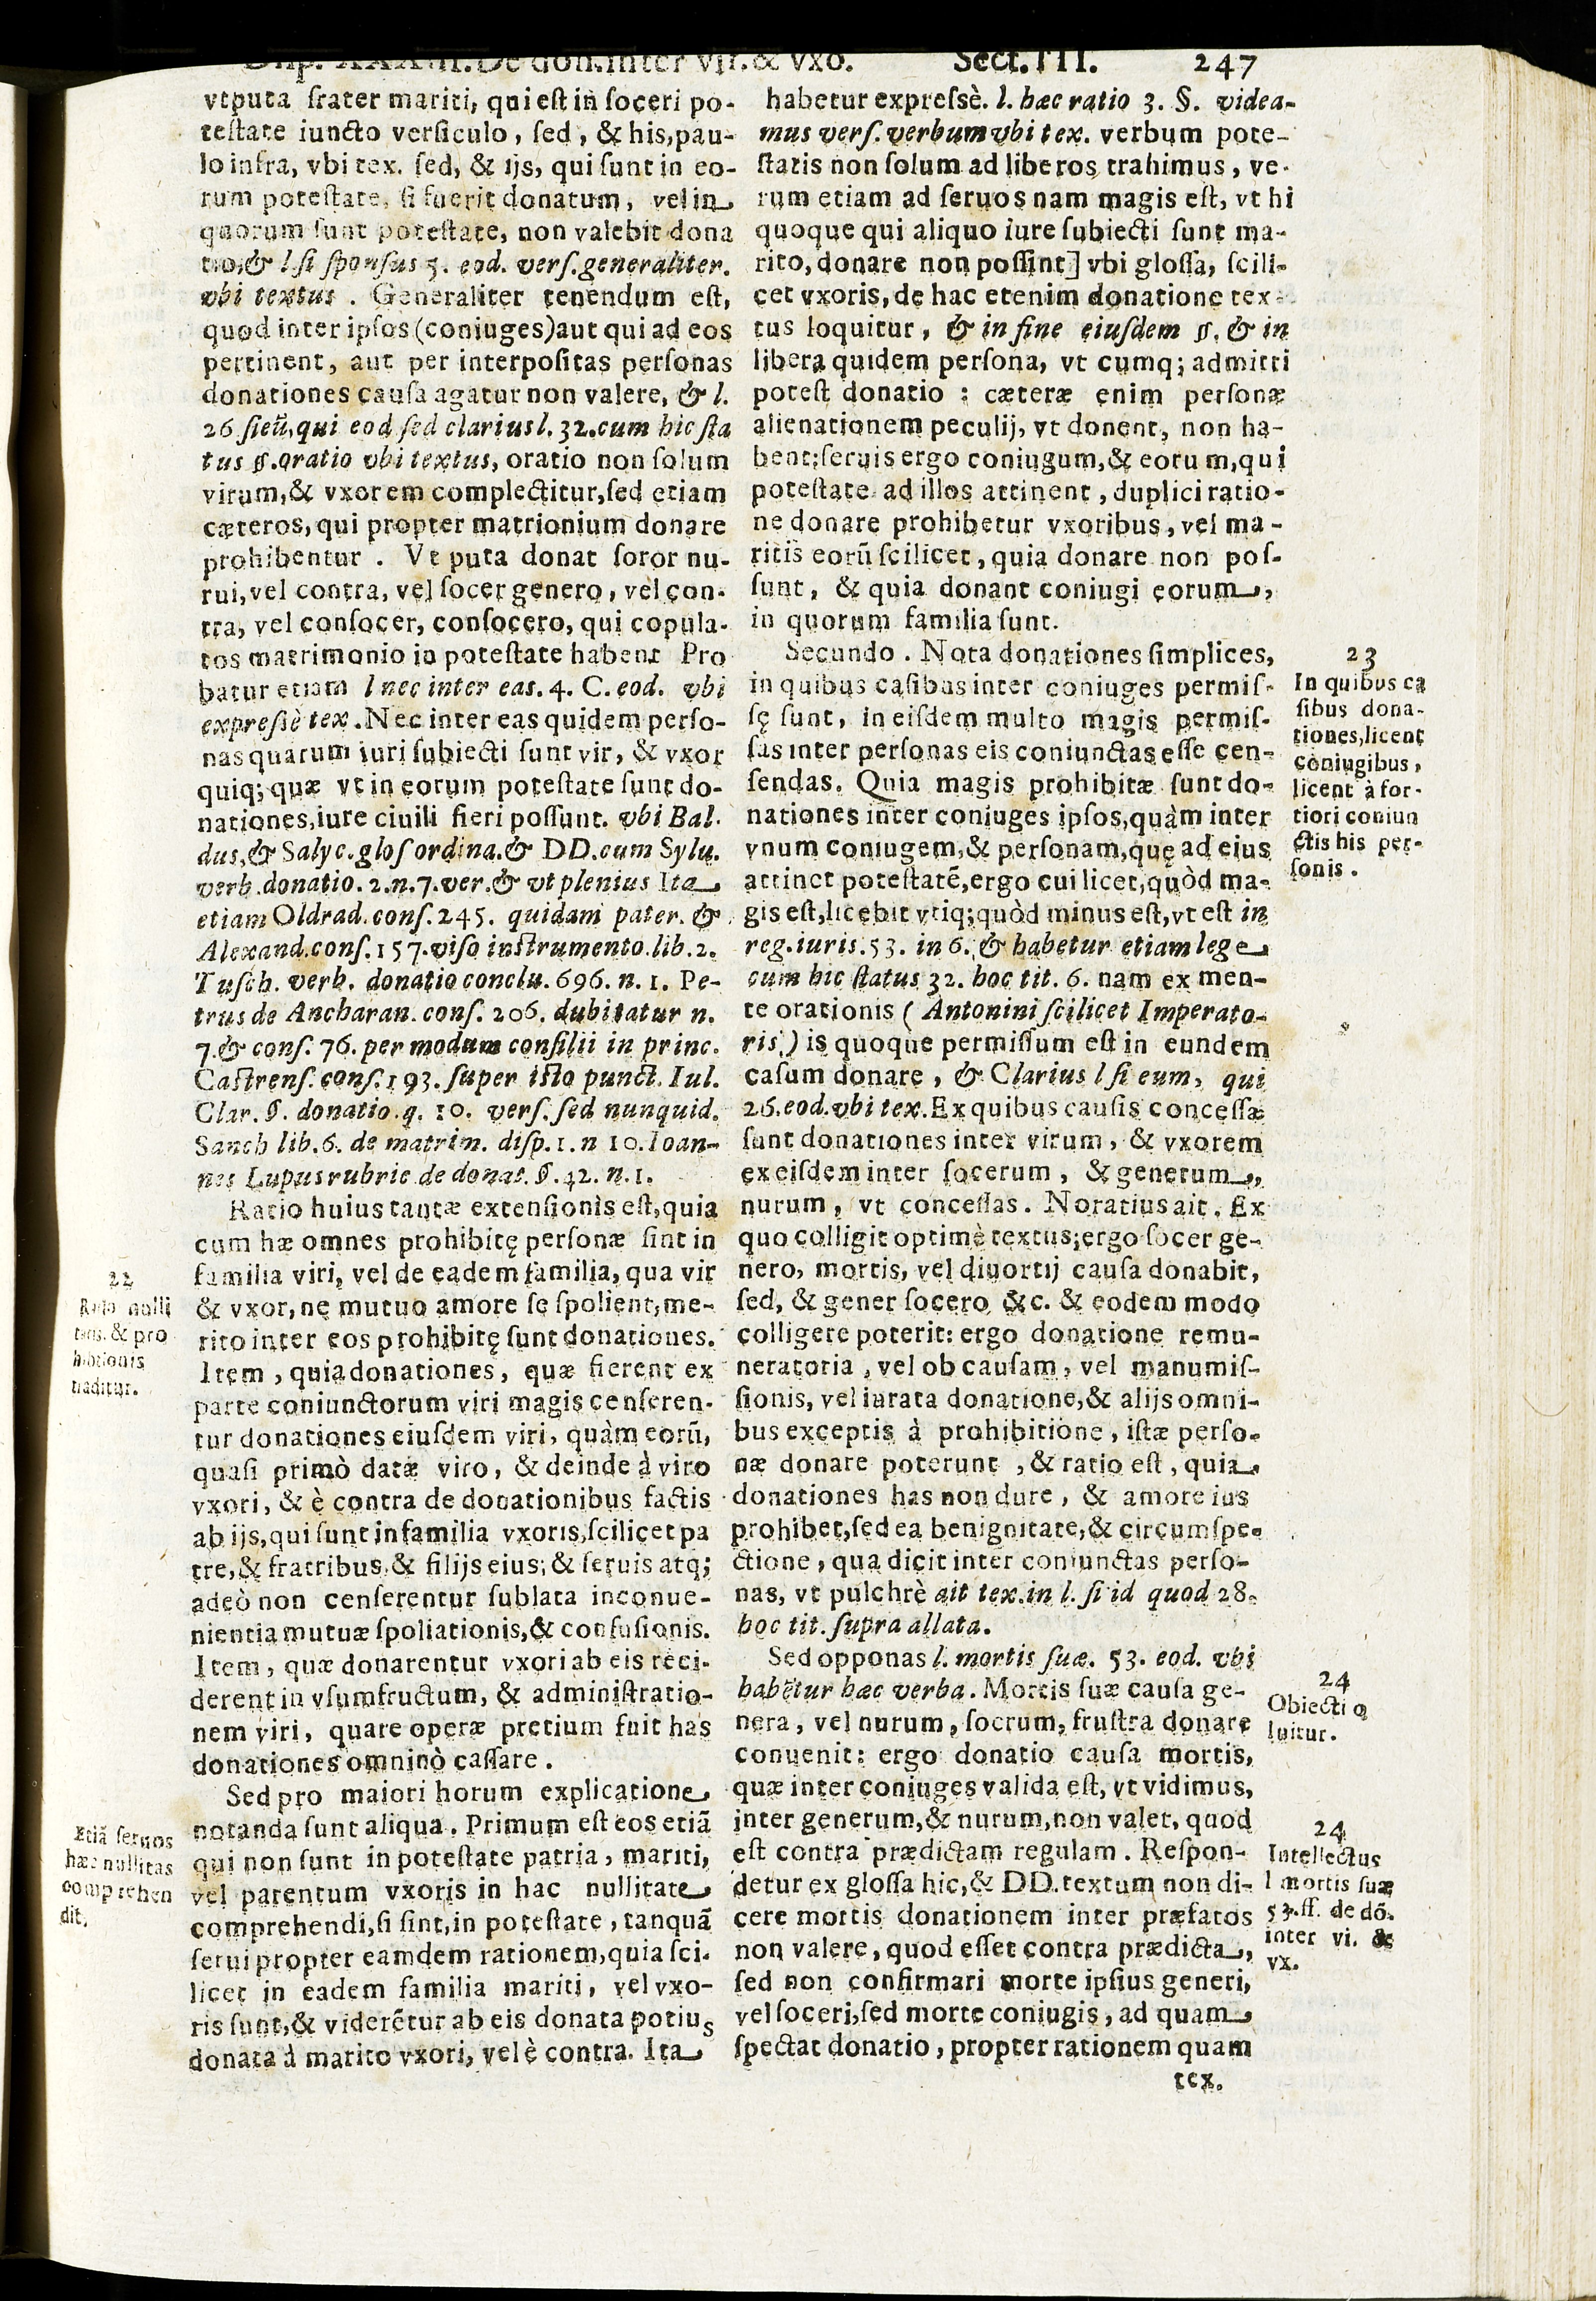 De don. inter vir. & vxo. Sect. III. 247
vtputa frater mariti, qui est in soceri po-
testate iuncto versiculo, sed, & his, pau-
lo infra, vbi tex. sed, & ijs, qui sunt in eo-
rum potestate, si fuerit donatum, vel in
quorum sunt potestate, non valebit dona
tio, & l si sponsus 5. eod. vers. generaliter.
vbi textus. Generaliter tenendum est,
quod inter ipsos (coniuges) aut qui ad eos
pertinent, aut per interpositas personas
donationes causa agatur non valere, & l.
26 sieū, qui eod sed clarius l. 32. cum hic sta
tus §. oratio vbi textus, oratio non solum
virum, & vxorem complectitur, sed etiam
cæteros, qui propter matrionium donare
prohibentur. Vt puta donat soror nu-
rui, vel contra, vel socer genero, vel con-
tra, vel consocer, consocero, qui copula-
tos matrimonio in potestate habent Pro
batur etiam l nec inter eas. 4. C. eod. vbi
expressè tex. Nec inter eas quidem perso-
nas quarum iuri subiecti sunt vir, & vxor
quiq; quæ vt in eorum potestate sunt do-
nationes, iure ciuili fieri possunt. vbi Bal.
dus, & Salyc. glos ordina. & DD. cum Sylu.
verb. donatio. 2. n. 7. ver. & vt plenius Ita
etiam Oldrad. cons. 245. quidam pater. &
Alexand. cons. 157. viso instrumento. lib. 2.
Tusch. verb. donatio conclu. 696. n. 1. Pe-
trus de Ancharan. cons. 206. dubitatur n.
7. & cons. 76. per modum consilii in princ.
Castrens. cons. 193. super isto punct. Iul.
Clar. §. donatio. q. 10. vers. sed nunquid.
Sanch lib. 6. de matrim. disp. 1. n 10. Ioan-
nes Lupus rubric de donat. §. 42. n. 1.
Ratio huius tantæ extensionis est, quia
cum hæ omnes prohibitę personæ sint in
familia viri, vel de eadem familia, qua vir
& vxor, ne mutuo amore se spolient, me-
rito inter eos prohibitę sunt donationes.
Item, quia donationes, quæ fierent ex
parte coniunctorum viri magis censeren-
tur donationes eiusdem viri, quàm eorū,
quasi primò datæ viro, & deinde à viro
vxori, & è contra de donationibus factis
ab ijs, qui sunt in familia vxoris, scilicet pa
tre, & fratribus, & filijs eius, & seruis atq;
adeò non censerentur sublata inconue-
nientia mutuæ spoliationis, & confusionis.
Item, quæ donarentur vxori ab eis reci-
derent in vsumfructum, & administratio-
nem viri, quare operæ pretium fuit has
donationes omninò cassare.
Sed pro maiori horum explicatione
notanda sunt aliqua. Primum est eos etiā
qui non sunt in potestate patria, mariti,
vel parentum vxoris in hac nullitate
comprehendi, si sint, in potestate, tanquā
serui propter eamdem rationem, quia sci-
licet in eadem familia mariti, vel vxo-
ris sunt, & viderētur ab eis donata potius
donata à marito vxori, vel è contra. Ita
22
Ratio nulli
tatis. & pro
hibitionis
traditur.
Etiā seruos
hæc nullitas
comprehen
dit.
habetur expressè. l. hæc ratio 3. §. videa-
mus vers. verbum vbi tex. verbum pote-
statis non solum ad liberos trahimus, ve-
rum etiam ad seruos nam magis est, vt hi
quoque qui aliquo iure subiecti sunt ma-
rito, donare non possint] vbi glossa, scili-
cet vxoris, de hac etenim donatione tex-
tus loquitur, & in fine eiusdem §. & in
libera quidem persona, vt cumq; admitti
potest donatio : cæteræ enim personæ
alienationem peculij, vt donent, non ha-
bent; seruis ergo coniugum, & eorum, qui
potestate ad illos attinent, duplici ratio-
ne donare prohibetur vxoribus, vel ma-
ritis eorū scilicet, quia donare non pos-
sunt, & quia donant coniugi eorum,
in quorum familia sunt.
Secundo. Nota donationes simplices,
in quibus casibus inter coniuges permis-
sę sunt, in eisdem multo magis permis-
sas inter personas eis coniunctas esse cen-
sendas. Quia magis prohibitæ sunt do-
nationes inter coniuges ipsos, quàm inter
vnum coniugem, & personam, quę ad eius
attinet potestatē, ergo cui licet, quòd ma-
gis est, licebit vtiq; quòd minus est, vt est in
reg. iuris. 53. in 6. & habetur etiam lege
cum hic status 32. hoc tit. 6. nam ex men-
te orationis (Antonini scilicet Imperato-
ris) is quoque permissum est in eundem
casum donare, & Clarius l si eum, qui
26. eod. vbi tex. Ex quibus causis concessæ
sunt donationes inter virum, & vxorem
ex eisdem inter socerum, & generum,
nurum, vt concessas. Noratius ait. Ex
quo colligit optimè textus; ergo socer ge-
nero, mortis, vel diuortij causa donabit,
sed, & gener socero &c. & eodem modo
colligere poterit: ergo donatione remu-
neratoria, vel ob causam, vel manumis-
sionis, vel iurata donatione, & alijs omni-
bus exceptis à prohibitione, istæ perso-
næ donare poterunt, & ratio est, quia
donationes has non dure, & amore ius
prohibet, sed ea benignitate, & circumspe-
ctione, qua dicit inter coniunctas perso-
nas, vt pulchrè ait tex. in l. si id quod 28.
hoc tit. supra allata.
Sed opponas l. mortis suæ. 53. eod. vbi
habetur hæc verba. Mortis suæ causa ge-
nera, vel nurum, socrum, frustra donare
conuenit: ergo donatio causa mortis,
quæ inter coniuges valida est, vt vidimus,
inter generum, & nurum, non valet, quod
est contra prædictam regulam. Respon-
detur ex glossa hic, & DD. textum non di-
cere mortis donationem inter præfatos
non valere, quod esset contra prædicta,
sed non confirmari morte ipsius generi,
vel soceri, sed morte coniugis, ad quam
spectat donatio, propter rationem quam
tex.
23
In quibus ca
sibus dona-
tiones, licent
coniugibus,
licent à for-
tiori coniun
ctis his per-
sonis.
24
Obiectio
luitur.
24
Intellectus
l mortis suæ
53. ff. de dō.
inter vi. &
vx.